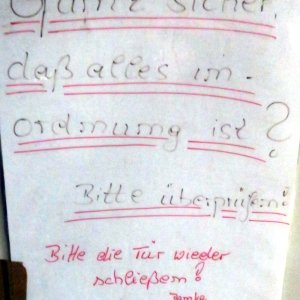 Ganz sicher,
daß alles im-
ordnung ist?
Bitte überprüfen!
Bitte die Tür wieder
schließen!
Danke